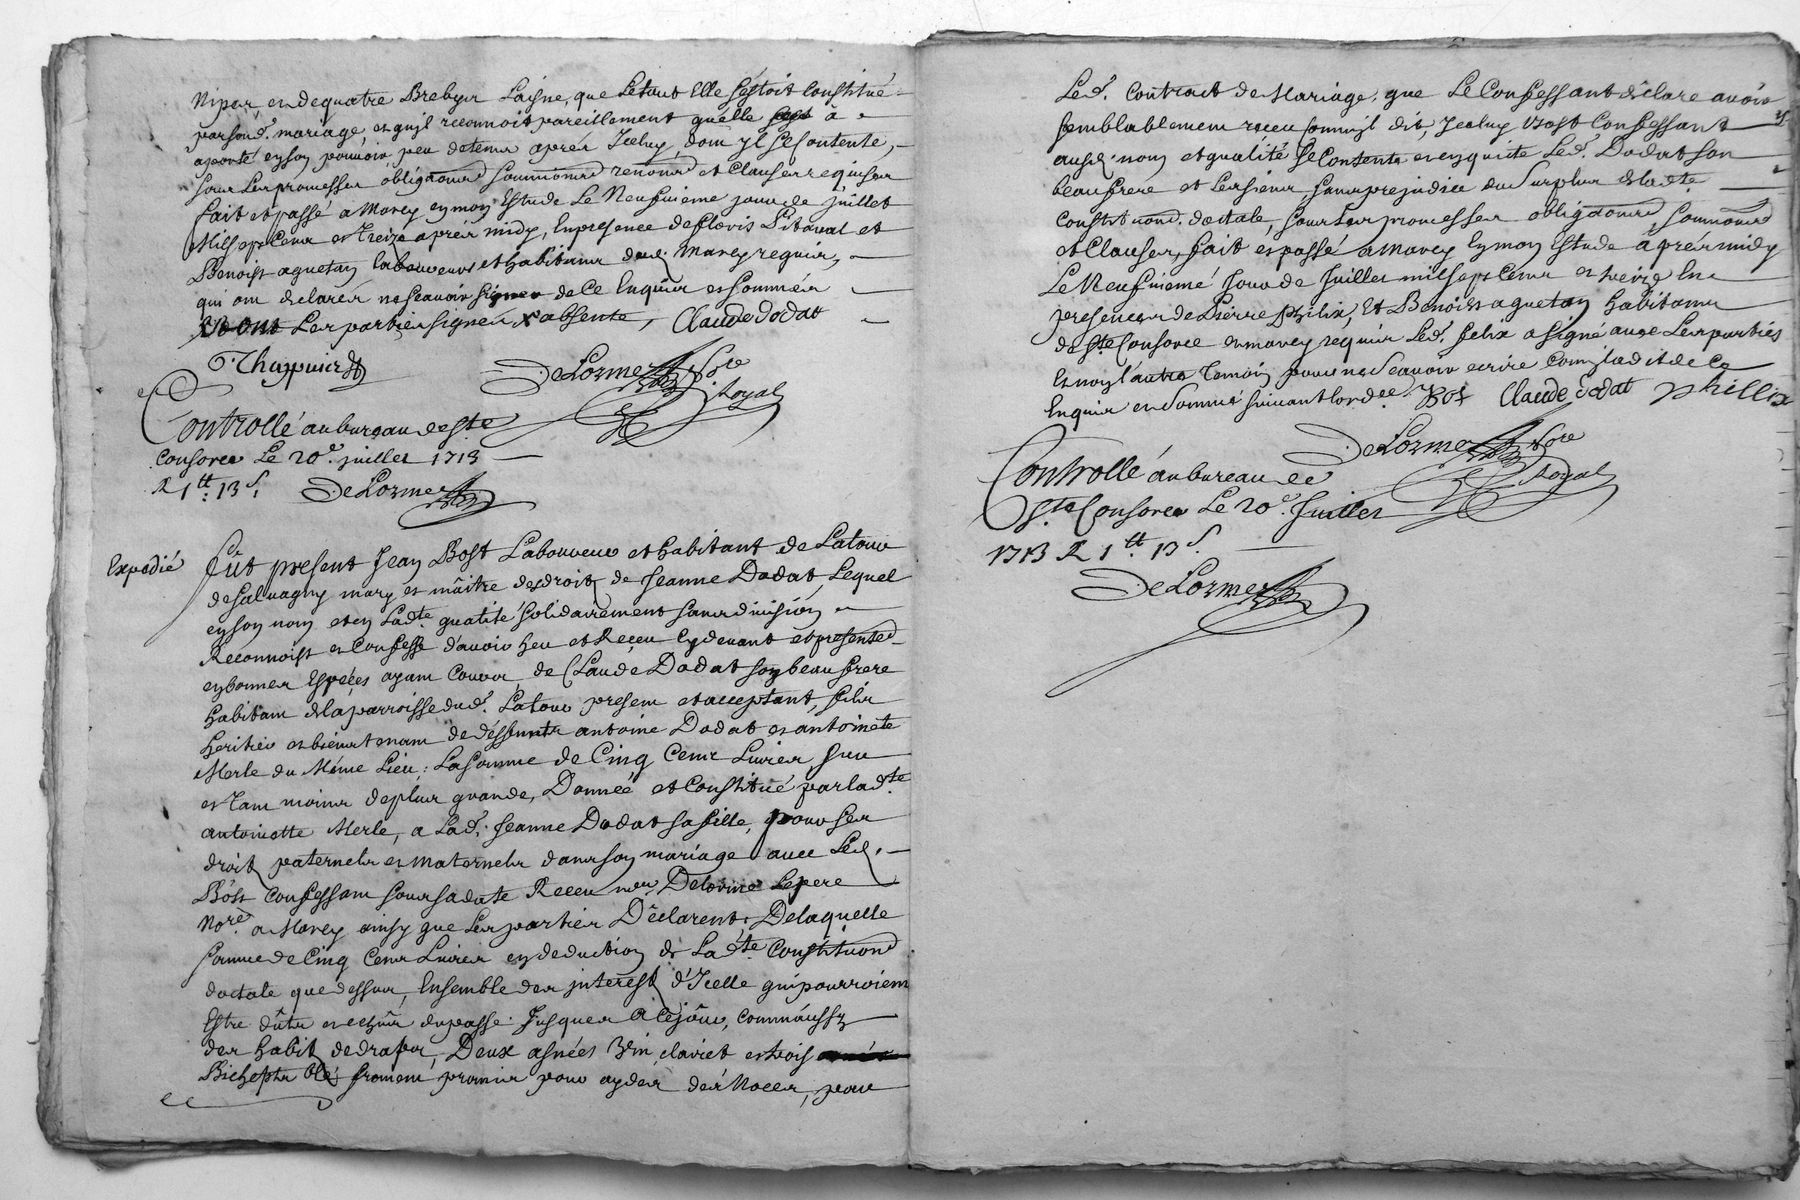 nipar, et de quatre Brebyes Laine, que le tout Elle s'estoit Constitué
par sond. mariage, et qu'il reconnoit pareillement qu'elle à
aporté en son pouvoir, peu de tems aprés Iceluy, dont Il se contente,
sous Les promesses obligaõns soumiõns renonõns et Clauses requises
fait et passé a Marcy en mon Estude Le Neufvieme jour de juillet
Mil sept Cens et Treize aprés midy, En presence de Clovis Pitaval et
Benoist aguetan laboureurs et habitans dud. Marcy requis,
qui ont declarés ne scavoir signer de Ce Enquis et sommés
Les parties signeés X absente, Claude dodat
Chappuis
DeLorme Nore Royal
Controllé au bureau de Ste
Consorce Le 20e. juillet 1713
R 1tt: 13s. DeLorme
Expedié
Fût present Jean Bost Laboureur et habitant de Latour
de salvagny mary et mâitre des droits de Jeanne Dodat, Lequel
en son nom et en Ladte. qualité solidairement sans division
Reconnoist et Confesse d'avoir heu et Receu Cy devant et presentem̃
en bonnes Espéces ayant Cours, de Claude Dodat son beau frere
habitant de la parroisse dud. Latour present et acceptant, fils
heritier et bientenant de déffunts antoine Dodat et antoinete
Merle du Méme Lieu; La somme de Cinq Cens Livres, sur
et Tant moins de plus grande, Donneé et Constitué par lad.te
antoinette Merle, a Lad. Jeanne Dodat sa fille, pour ses
droits paternels et maternels dans son mariage avec Led.
Bost Confessant sous sa date Receu Delorme Le pere
Nore. a Marcy ainsy que Les parties Déclarent; De laquelle
somme de Cinq Cens Livres en deduction de Ladte. Constituõn
doctale que dessus, Ensemble des interests d'Icelle qui pourroient
Estre dûts et echûs du passé Jusques A Ce jour, comme aussy
des habits de drapts, Deux asnées vin clairet et trois
Bichepts Blé froment promis pour ayder des Noces, par
Led. Contract de Mariage, que Le Confessant declare avoir
semblablement receu comme il dit, Jceluy Bost Confessant
ausd. nom et qualité se Contente et en quitte Led. Dodat son
beau frere et Les siens sans prejudice du surplus de ladte.
Constituõn doctale, sous Les promesses obligaõns soumiõns
et Clauses, fait et passé a Marcy En mon Estude aprés midy
Le Neufviémé Jour de Juillet mil sept Cens et treize En
presence de Pierre philix, Et Benoist aguetan habitans
de Ste. Consorce et marcy requis Led. felix a signé avec Les parties
et non l'autre Temoin pour ne scavoir ecrire comme a dit de Ce
Enquis et Sommé suivant l'ordce. Bost Claude dodat phillix
DeLorme Nore Royal
Controllé au bureau de
Ste Consorce Le 20e. Juillet
1713 R 1tt. 13s.
DeLorme